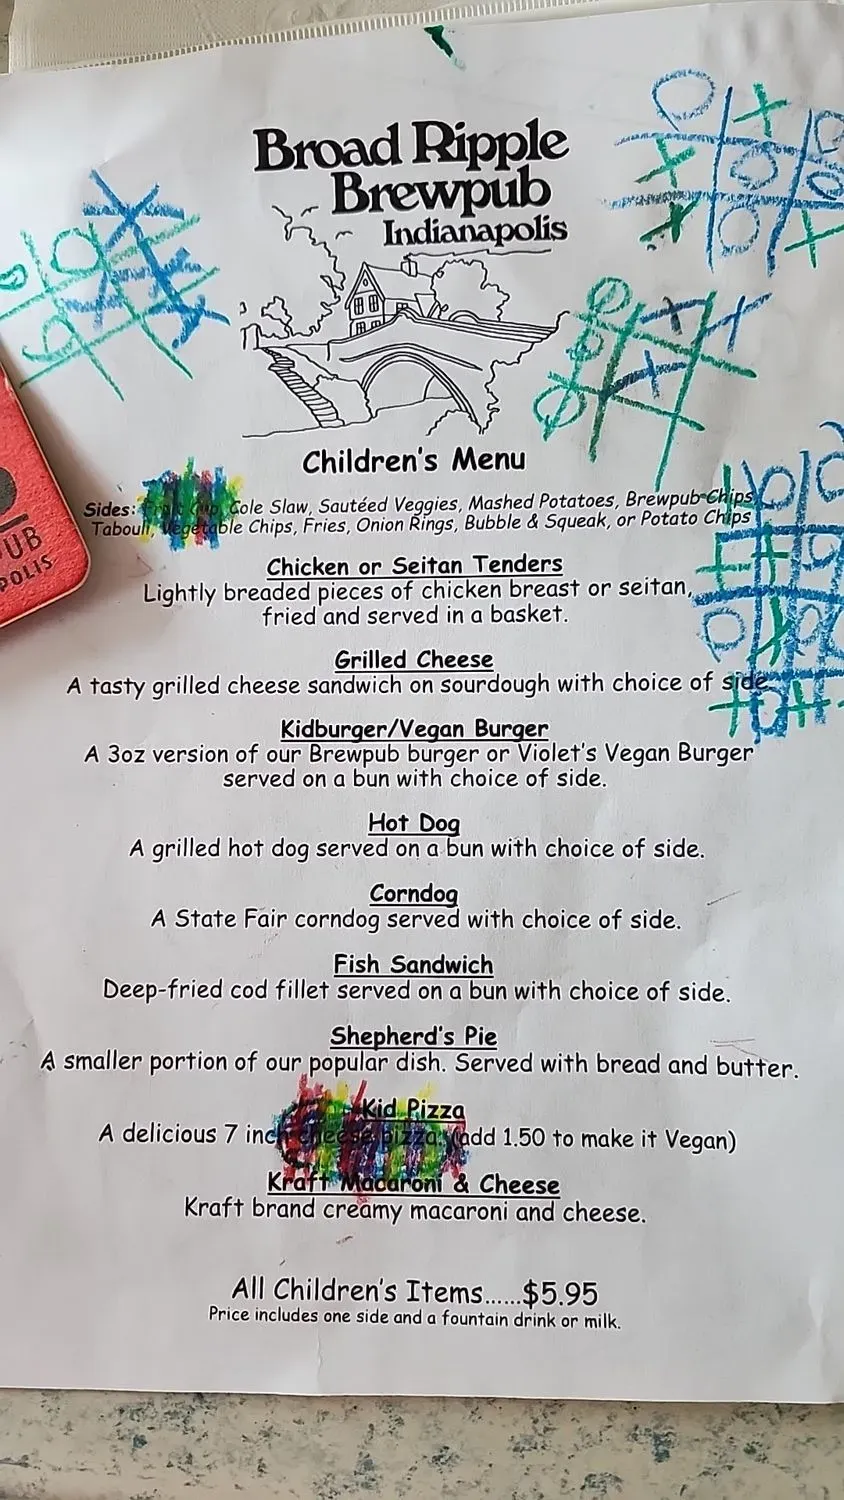 Broad Ripple
Brewpub
Indianapolis
PUB
POLIS
Children's Menu
Sides: Fruit Cup, Cole Slaw, Sautéed Veggies, Mashed Potatoes, Brewpub Chips
Tabouli, Vegetable Chips, Fries, Onion Rings, Bubble & Squeak, or Potato Chips
Chicken or Seitan Tenders
Lightly breaded pieces of chicken breast or seitan,
fried and served in a basket.
Grilled Cheese
A tasty grilled cheese sandwich on sourdough with choice of side
Kidburger/Vegan Burger
A 3oz version of our Brewpub burger or Violet's Vegan Burger
served on a bun with choice of side.
Hot Dog
A grilled hot dog served on a bun with choice of side.
Corndog
A State Fair corndog served with choice of side.
Fish Sandwich
Deep-fried cod fillet served on a bun with choice of side.
Shepherd's Pie
A smaller portion of our popular dish. Served with bread and butter.
Kid Pizza
A delicious 7 inch cheese pizza. (add 1.50 to make it Vegan)
Kraft Macaroni & Cheese
Kraft brand creamy macaroni and cheese.
All Children's Items......$5.95
Price includes one side and a fountain drink or milk.